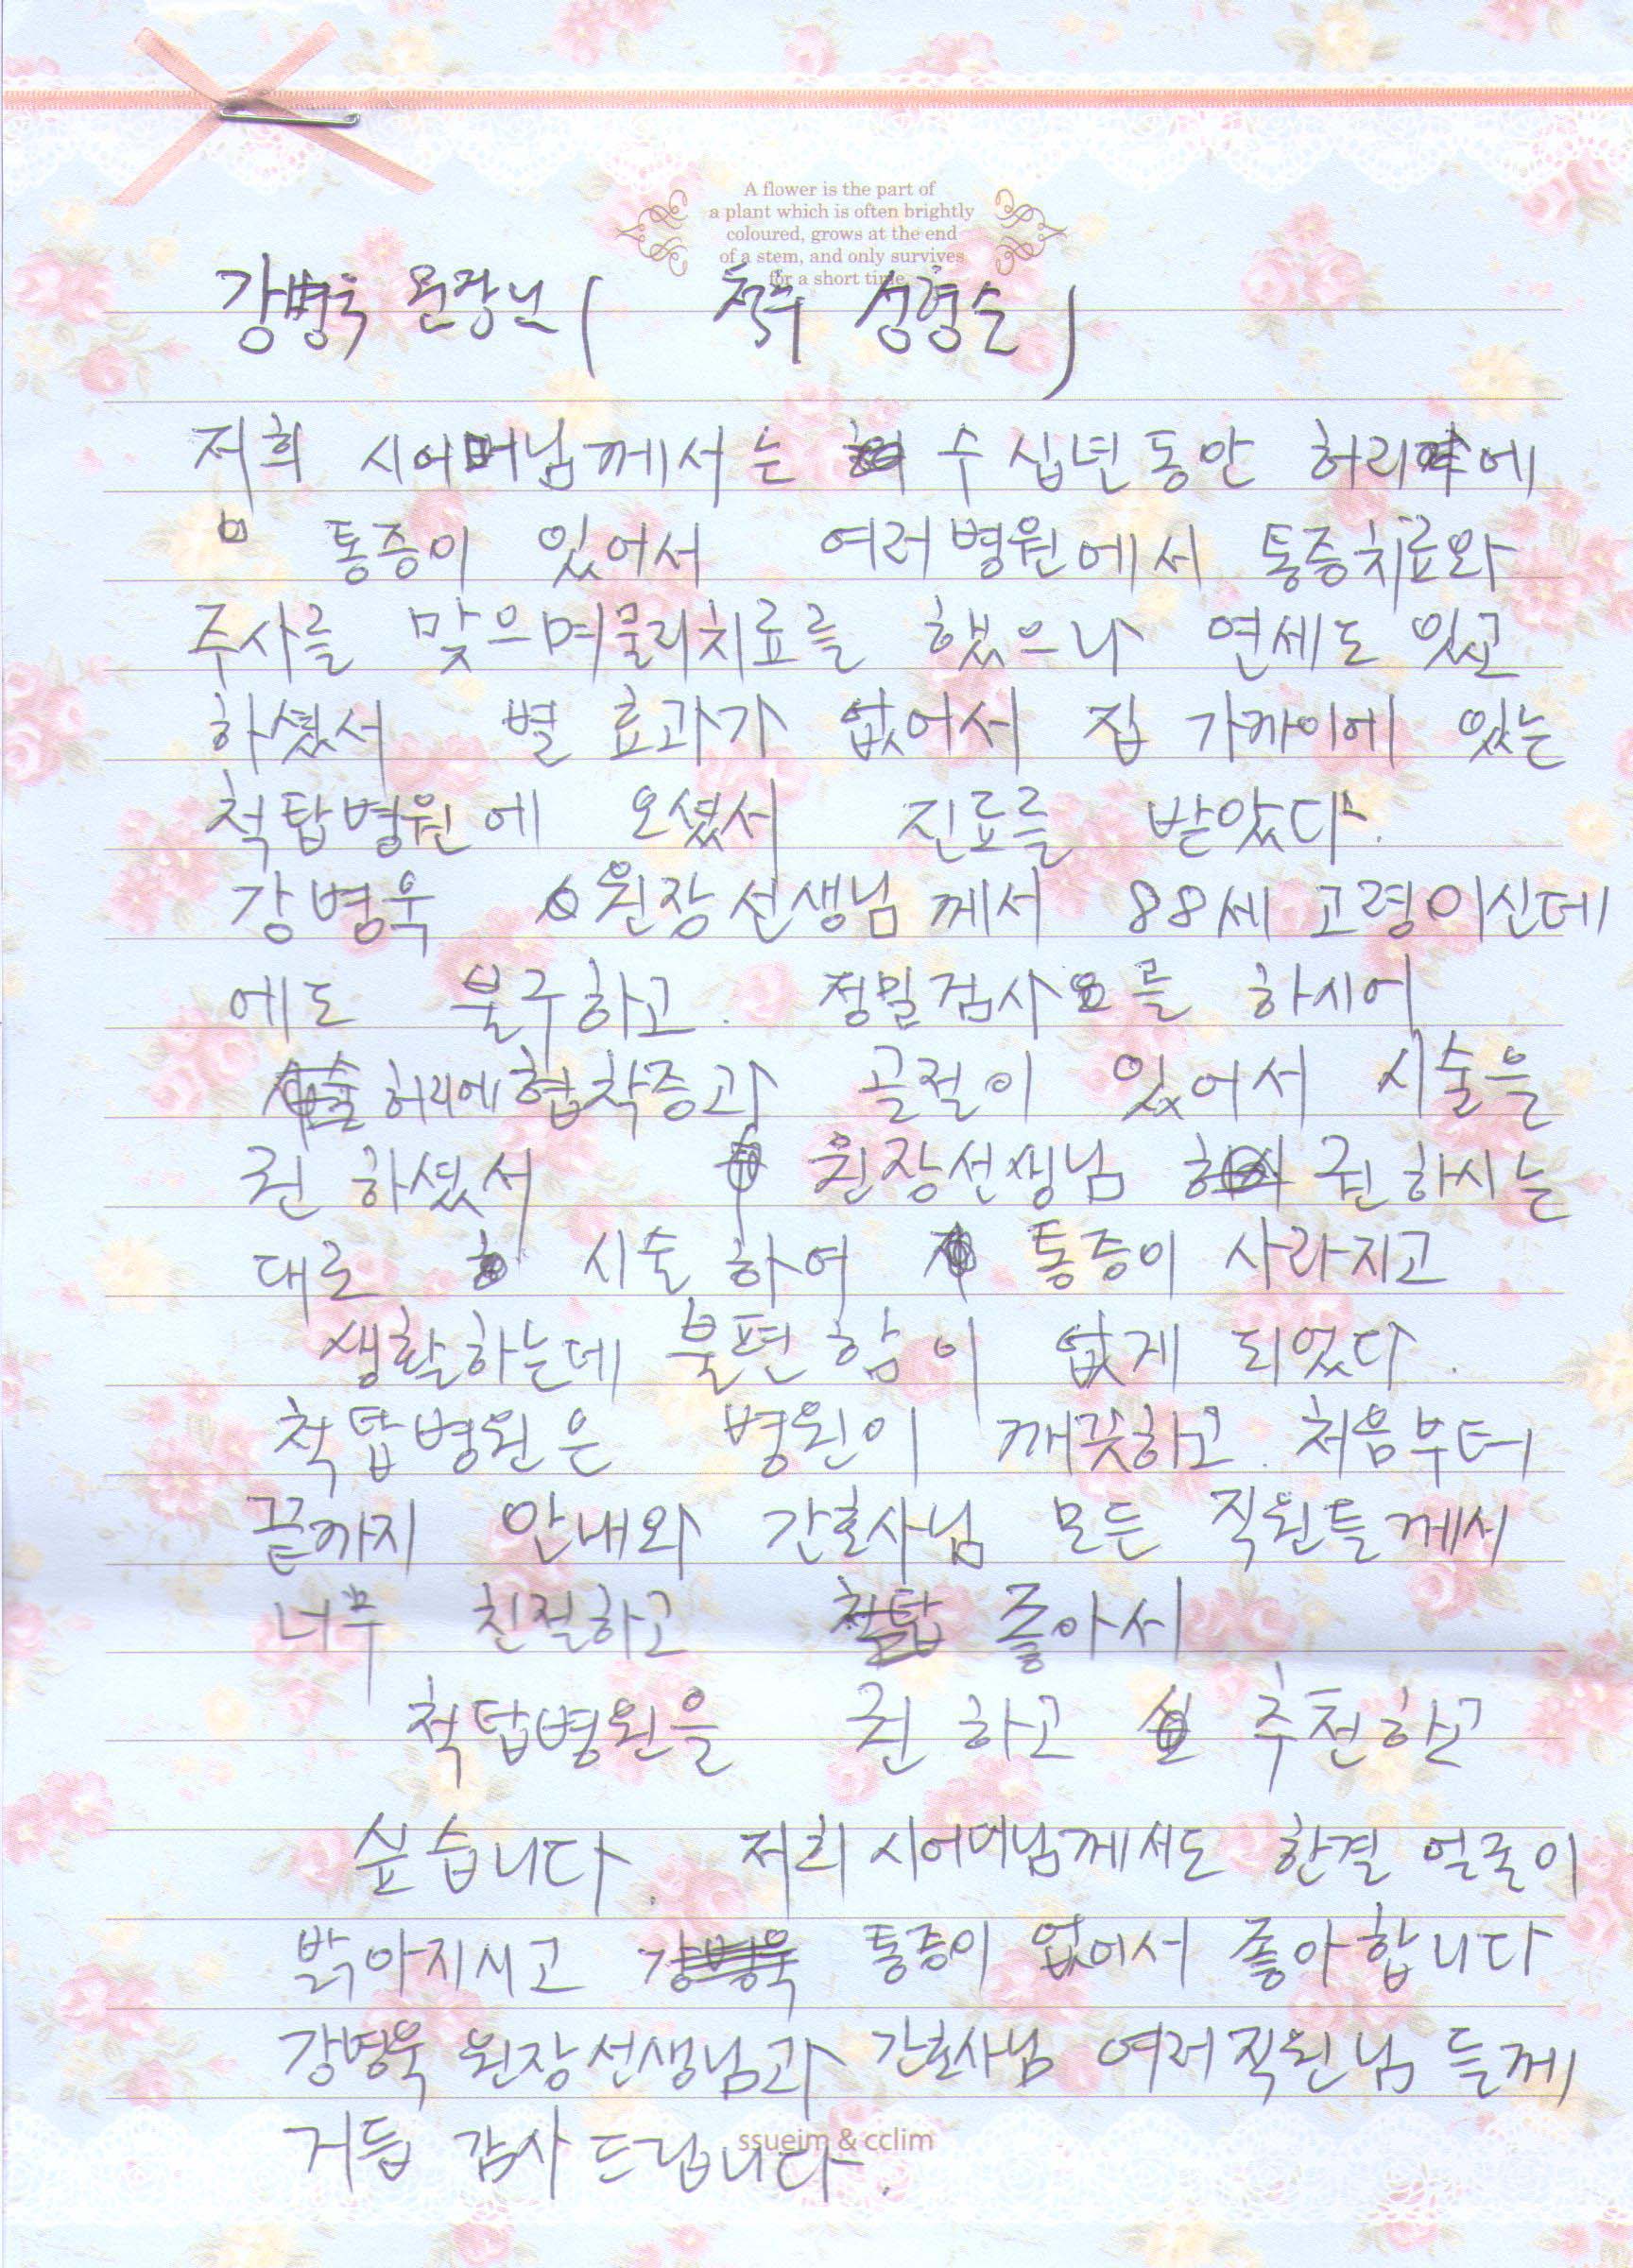 A flower is the part of
a plant which is often brightly
coloured, grows at the end
of a stem, and only survives
for a short time
강병욱 원장님 ( 척추 성형술 )
저희 시어머님께서는 수 십년동안 허리에
통증이 있어서 여러병원에서 통증치료와
주사를 맞으며물리치료를 했으나 연세도 있고
하셨서 별 효과가 없어서 집 가까이에 있는
척탑병원에 오셨서 진료를 받았다.
강병욱 원장선생님께서 88세 고령이신데
에도 불구하고. 정밀검사를 하시어
허리에협착증과 골절이 있어서 시술을
권 하셨서 원장선생님 권하시는
대로 시술하여 통증이 사라지고
생활하는데 불편함이 없게 되었다.
척탑병원은 병원이 깨끗하고. 처음부터
끝까지 안내와 간호사님 모든 직원들께서
너무 친절하고 좋아서
척탑병원을 권하고 추천하고
싶습니다. 저희 시어머님께서도 한결 얼굴이
밝아지시고 통증이 없어서 좋아합니다
강병욱 원장선생님과 간호사님 여러직원님들께
거듭 감사드립니다.
ssueim & cclim